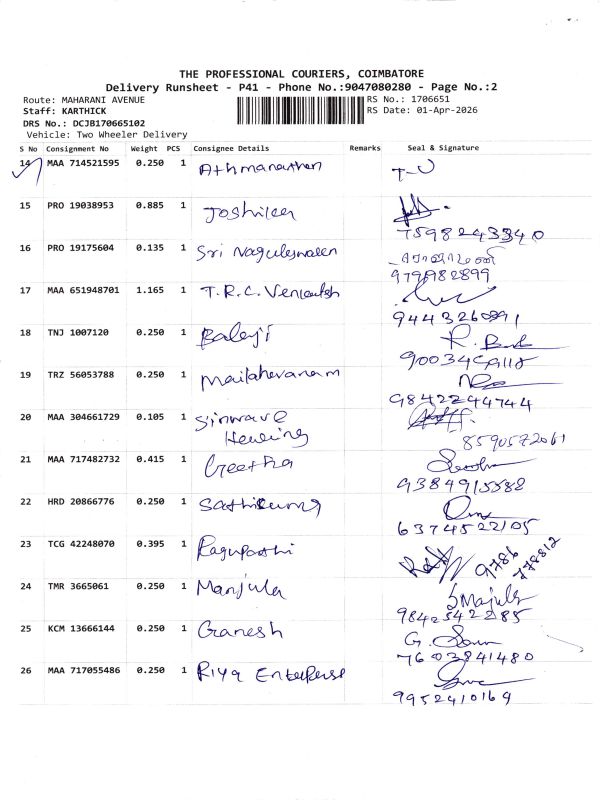 THE PROFESSIONAL COURIERS, COIMBATORE
Delivery Runsheet - P41 - Phone No.:9047080280 - Page No.:2
Route: MAHARANI AVENUE RS No.: 1706651
Staff: KARTHICK RS Date: 01-Apr-2026
DRS No.: DCJB170665102
Vehicle: Two Wheeler Delivery
S No Consignment No Weight PCS Consignee Details Remarks Seal & Signature
14 MAA 714521595 0.250 1
15 PRO 19038953 0.885 1
7598243340
16 PRO 19175604 0.135 1 Sri
9791982899
17 MAA 651948701 1.165 1 T.R.C.
9443260891
18 TNJ 1007120 0.250 1 Balaji
19 TRZ 56053788 0.250 1 Mailahevanam
9842294744
20 MAA 304661729 0.105 1 Sinwave
Hearing
8590572061
21 MAA 717482732 0.415 1 Geetha
9384915582
22 HRD 20866776 0.250 1
6374522105
23 TCG 42248070 0.395 1 Ragupathi 9786
778812
24 TMR 3665061 0.250 1 Manjula
9842542285
25 KCM 13666144 0.250 1 Ganesh
7603841480
26 MAA 717055486 0.250 1 Riya Enterprise
9952410169